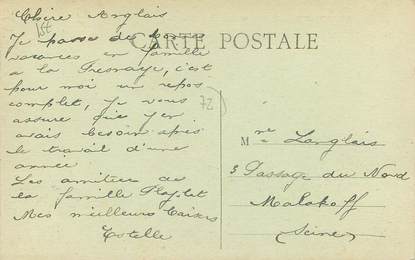 Chère Anglais
Je passe de bonnes
vacances en famille
a la Fresnaye, c'est
pour moi un repos
complet, Je vous
assure que j'en
avais besoin après
le travail d'une
année
Les amitiés de
la famille
Mes meilleurs baisers
Estelle
CARTE POSTALE
72
Mme Langlais
3 Passage du Nord
Malakoff
Seine